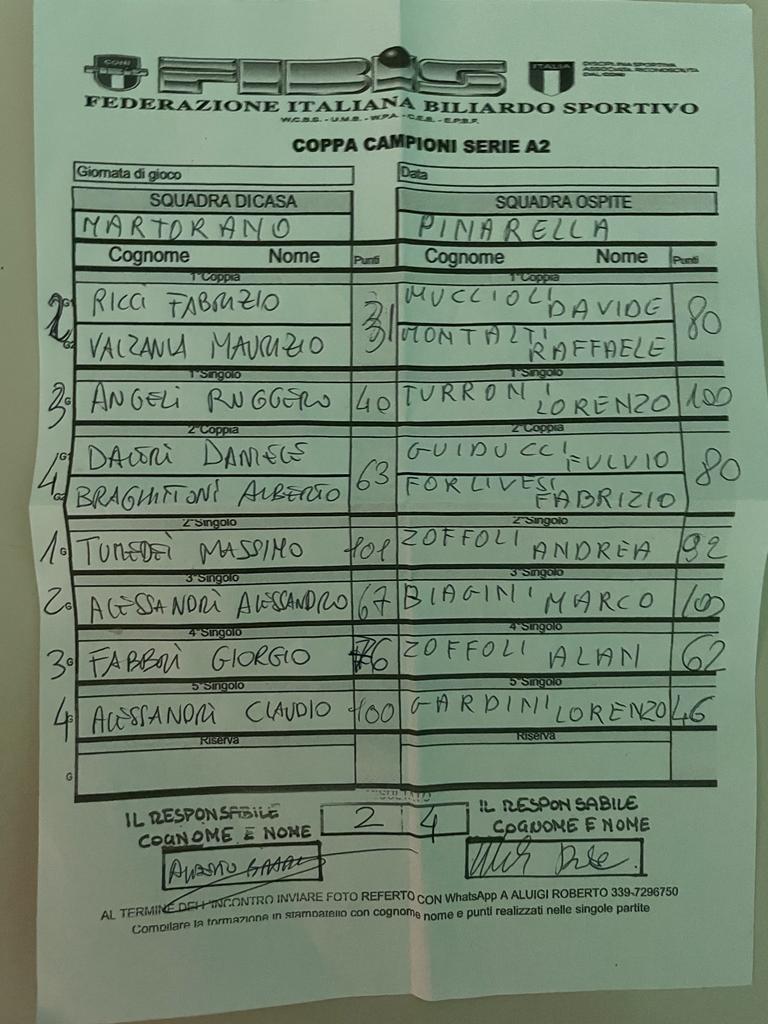 CONI
FIBIS
ITALIA
DISCIPLINA SPORTIVA
ASSOCIATA RICONOSCIUTA
DAL CONI
FEDERAZIONE ITALIANA BILIARDO SPORTIVO
W.C.B.S. - U.M.B. - W.P.A. - C.E.B. - E.P.B.F.
COPPA CAMPIONI SERIE A2
Giornata di gioco Data
SQUADRA DI CASA SQUADRA OSPITE
MARTORANO PINARELLA
Cognome Nome Punti Cognome Nome Punti
1°Coppia 1°Coppia
2 G1 RICCI FABRIZIO 31 MUCCIOLI DAVIDE 80
G2 VALZANIA MAURIZIO MONTALTI RAFFAELE
1°Singolo 1°Singolo
3 ANGELI RUGGERO 40 TURRONI LORENZO 100
2°Coppia 2°Coppia
4 G1 DALTRI DANIELE 63 GUIDUCCI FULVIO 80
G2 BRAGHITTONI ALBERTO FORLIVESI FABRIZIO
2°Singolo 2°Singolo
1 G TUMEDEI MASSIMO 101 ZOFFOLI ANDREA 92
3°Singolo 3°Singolo
2 G ALESSANDRI ALESSANDRO 67 BIAGINI MARCO 100
4°Singolo 4°Singolo
3 G FABBRI GIORGIO ZOFFOLI ALAN 62
5°Singolo 5°Singolo
4 G ALESSANDRI CLAUDIO 100 GARDINI LORENZO 46
Riserva Riserva
G
RISULTATO
IL RESPONSABILE 2 4 IL RESPONSABILE
COGNOME E NOME COGNOME E NOME
AL TERMINE DELL'INCONTRO INVIARE FOTO REFERTO CON WhatsApp A ALUIGI ROBERTO 339-7296750
Compilare la formazione in stampatello con cognome nome e punti realizzati nelle singole partite